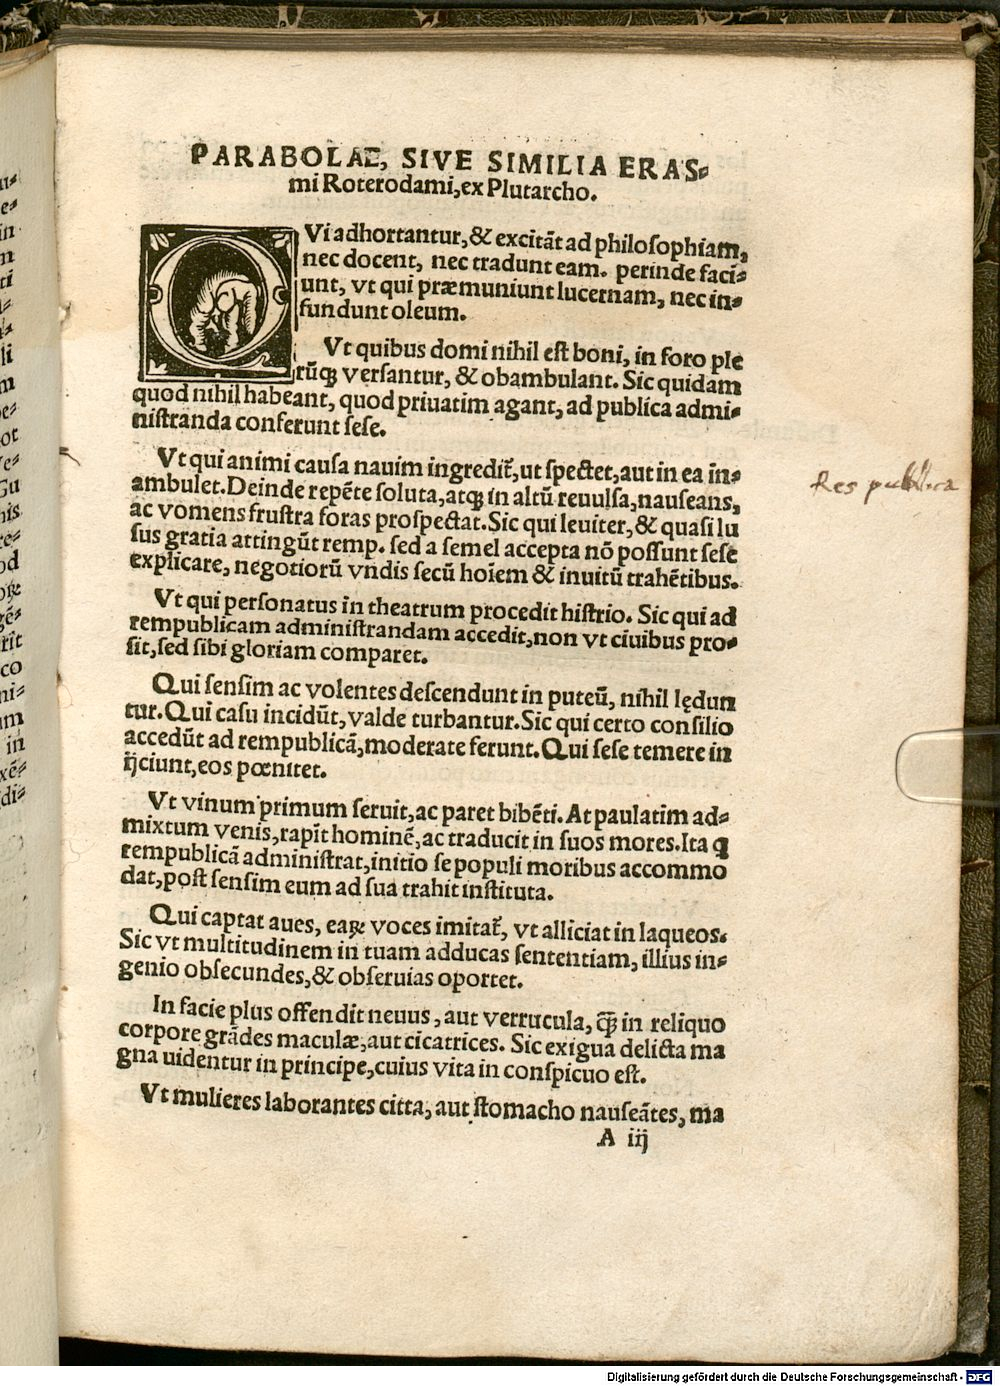 PARABOLAE, SIVE SIMILIA ERAS-
mi Roterodami, ex Plutarcho.
QVi adhortantur, & excitãt ad philosophiam,
nec docent, nec tradunt eam. perinde faci-
unt, vt qui præmuniunt lucernam, nec in-
fundunt oleum.
Vt quibus domi nihil est boni, in foro ple
rũq; versantur, & obambulant. Sic quidam
quod nihil habeant, quod priuatim agant, ad publica admi-
nistranda conferunt sese.
Vt qui animi causa nauim ingredit̃, ut spectet, aut in ea in-
ambulet. Deinde repẽte soluta, atq; in altũ reuulsa, nauseans,
ac vomens frustra foras prospectat. Sic qui leuiter, & quasi lu
sus gratia attingũt remp. sed a semel accepta nõ possunt sese
explicare, negotiorũ vndis secũ hoĩem & inuitũ trahẽtibus.
Vt qui personatus in theatrum procedit histrio. Sic qui ad
rempublicam administrandam accedit, non vt ciuibus pro-
sit, sed sibi gloriam comparet.
Qui sensim ac volentes descendunt in puteũ, nihil lędun
tur. Qui casu incidũt, valde turbantur. Sic qui certo consilio
accedũt ad rempublicã, moderate ferunt. Qui sese temere in
ijciunt, eos pœnitet.
Vt vinum primum seruit, ac paret bibẽti. At paulatim ad-
mixtum venis, rapĩt hominẽ, ac traducit in suos mores. Ita q
rempublicã administrat, initio se populi moribus accommo
dat, post sensim eum ad sua trahit instituta.
Qui captat aues, eaꝝ voces imitat̃, vt alliciat in laqueos.
Sic vt multitudinem in tuam adducas sententiam, illius in-
genio obsecundes, & obseruias oportet.
In facie plus offendit neuus, aut verrucula, q̃ in reliquo
corpore grãdes maculæ, aut cicatrices. Sic exigua delicta ma
gna uidentur in principe, cuius vita in conspicuo est.
Vt mulieres laborantes citta, aut stomacho nauseãtes, ma
A iij
Res publica
Digitalisierung gefördert durch die Deutsche Forschungsgemeinschaft - DFG